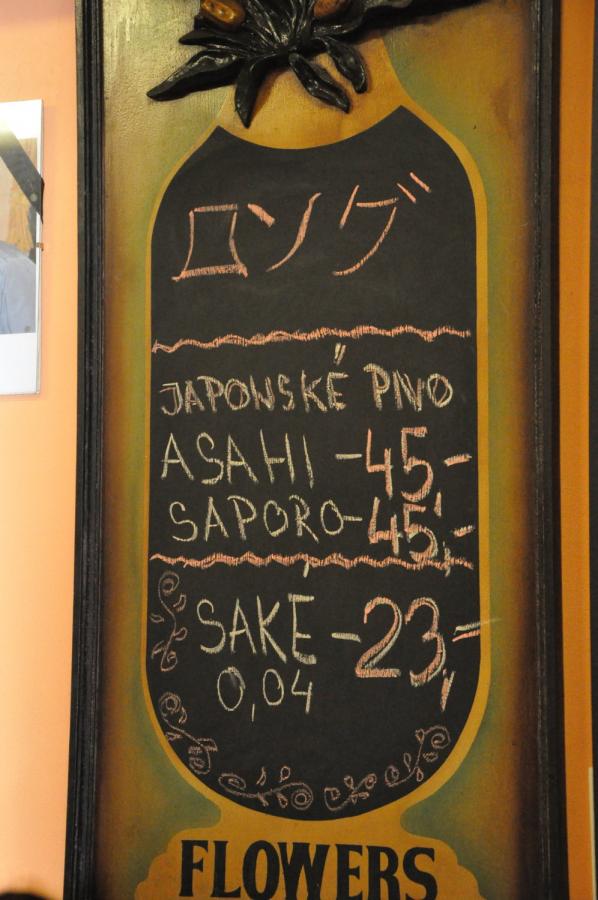 ロング
JAPONSKÉ PIVO
ASAHI -45,-
SAPORO-45,-
SAKE -23,-
0,04
FLOWERS